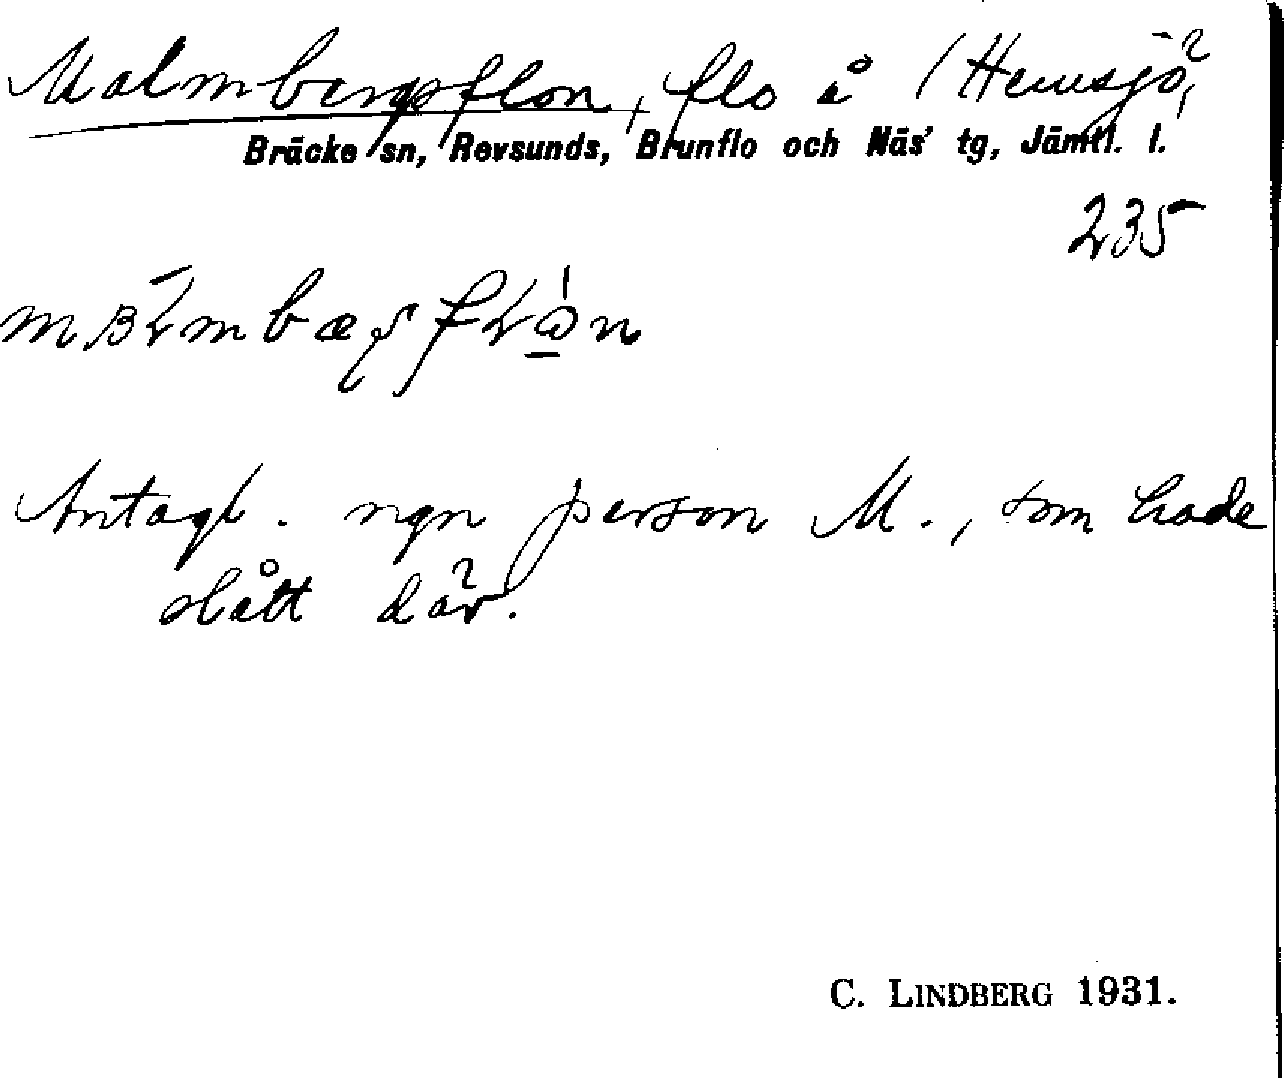 Malmbergsflon, flo å (Hemsjö,
Bräcke sn, Revsunds, Brunflo och Näs' tg, Jämtl. l.
235
Antagl. ngn person M., som hade
slått där.
C. LINDBERG 1931.